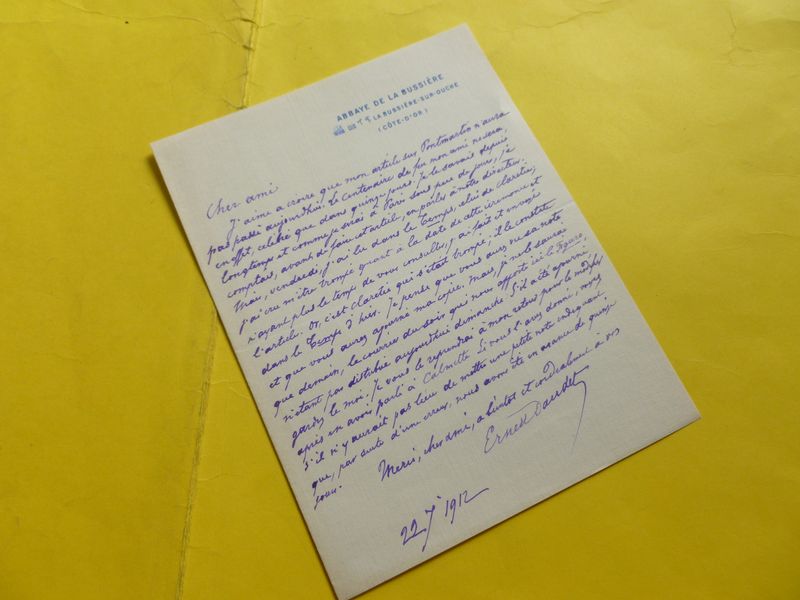 ABBAYE DE LA BUSSIÈRE
LA BUSSIÈRE-SUR-OUCHE
(CÔTE-D'OR)
Cher ami
J'aime à croire que mon article sur Pontmartin n'aura
pas passé aujourd'hui. Le centenaire de feu mon ami ne sera,
en effet, célébré que dans quinze jours. Je le savais depuis
longtemps et comme je serai à Paris sous peu de jours, je
comptais, avant de faire cet article, en parler à notre directeur.
Mais, vendredi, j'ai lu dans le Temps, celui de Claretie,
j'ai cru m'être trompé quant à la date de cette cérémonie et
n'ayant plus le temps de vous consulter, j'ai fait et envoyé
l'article. Or, c'est Claretie qui s'était trompé, il le constate
dans le Temps d'hier. Je pense que vous aurez vu sa note
et que vous aurez ajourné ma copie. Mais, je ne le saurai
que demain, le courrier du soir qui nous apporte ici le Figaro,
n'étant pas distribué aujourd'hui dimanche. S'il a été ajourné,
gardez le moi. Je vous le reprendrai à mon retour pour le modifier
après en avoir parlé à Calmette. Si vous l'avez donné, voyez
s'il n'y aurait pas lieu de mettre une petite note indiquant
que, par suite d'une erreur, nous avons été en avance de quinze
jours.
Merci, cher ami, à bientôt et cordialement à vous
Ernest Daudet
22 7r 1912